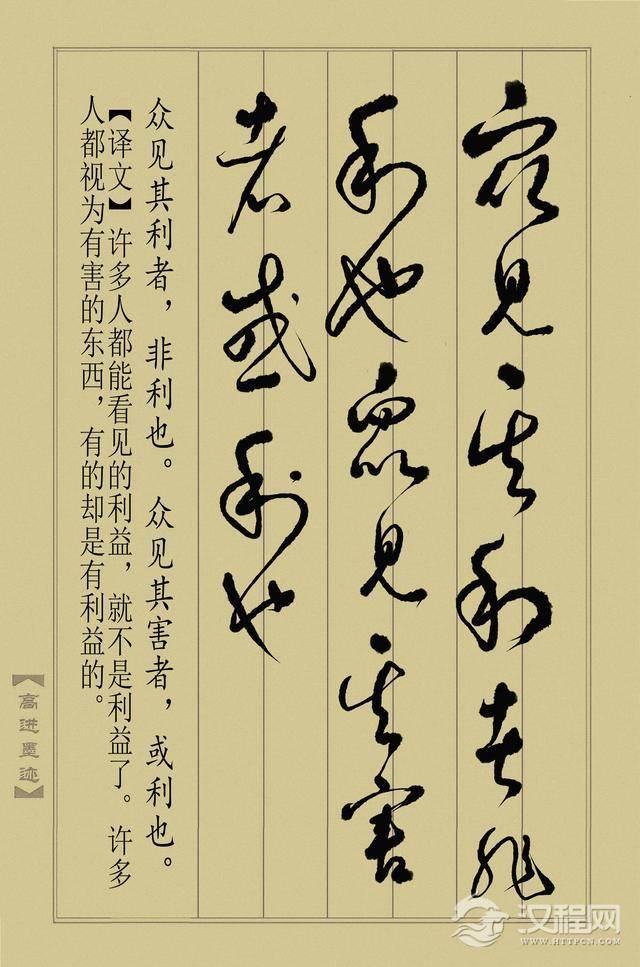 众见其利者非
利也众见其害
者或利也
众见其利者，非利也。众见其害者，或利也。
【译文】许多人都能看见的利益，就不是利益了。许多
人都视为有害的东西，有的却是有利益的。
【高进墨迹】
汉程网
WWW.HTTPCN.COM